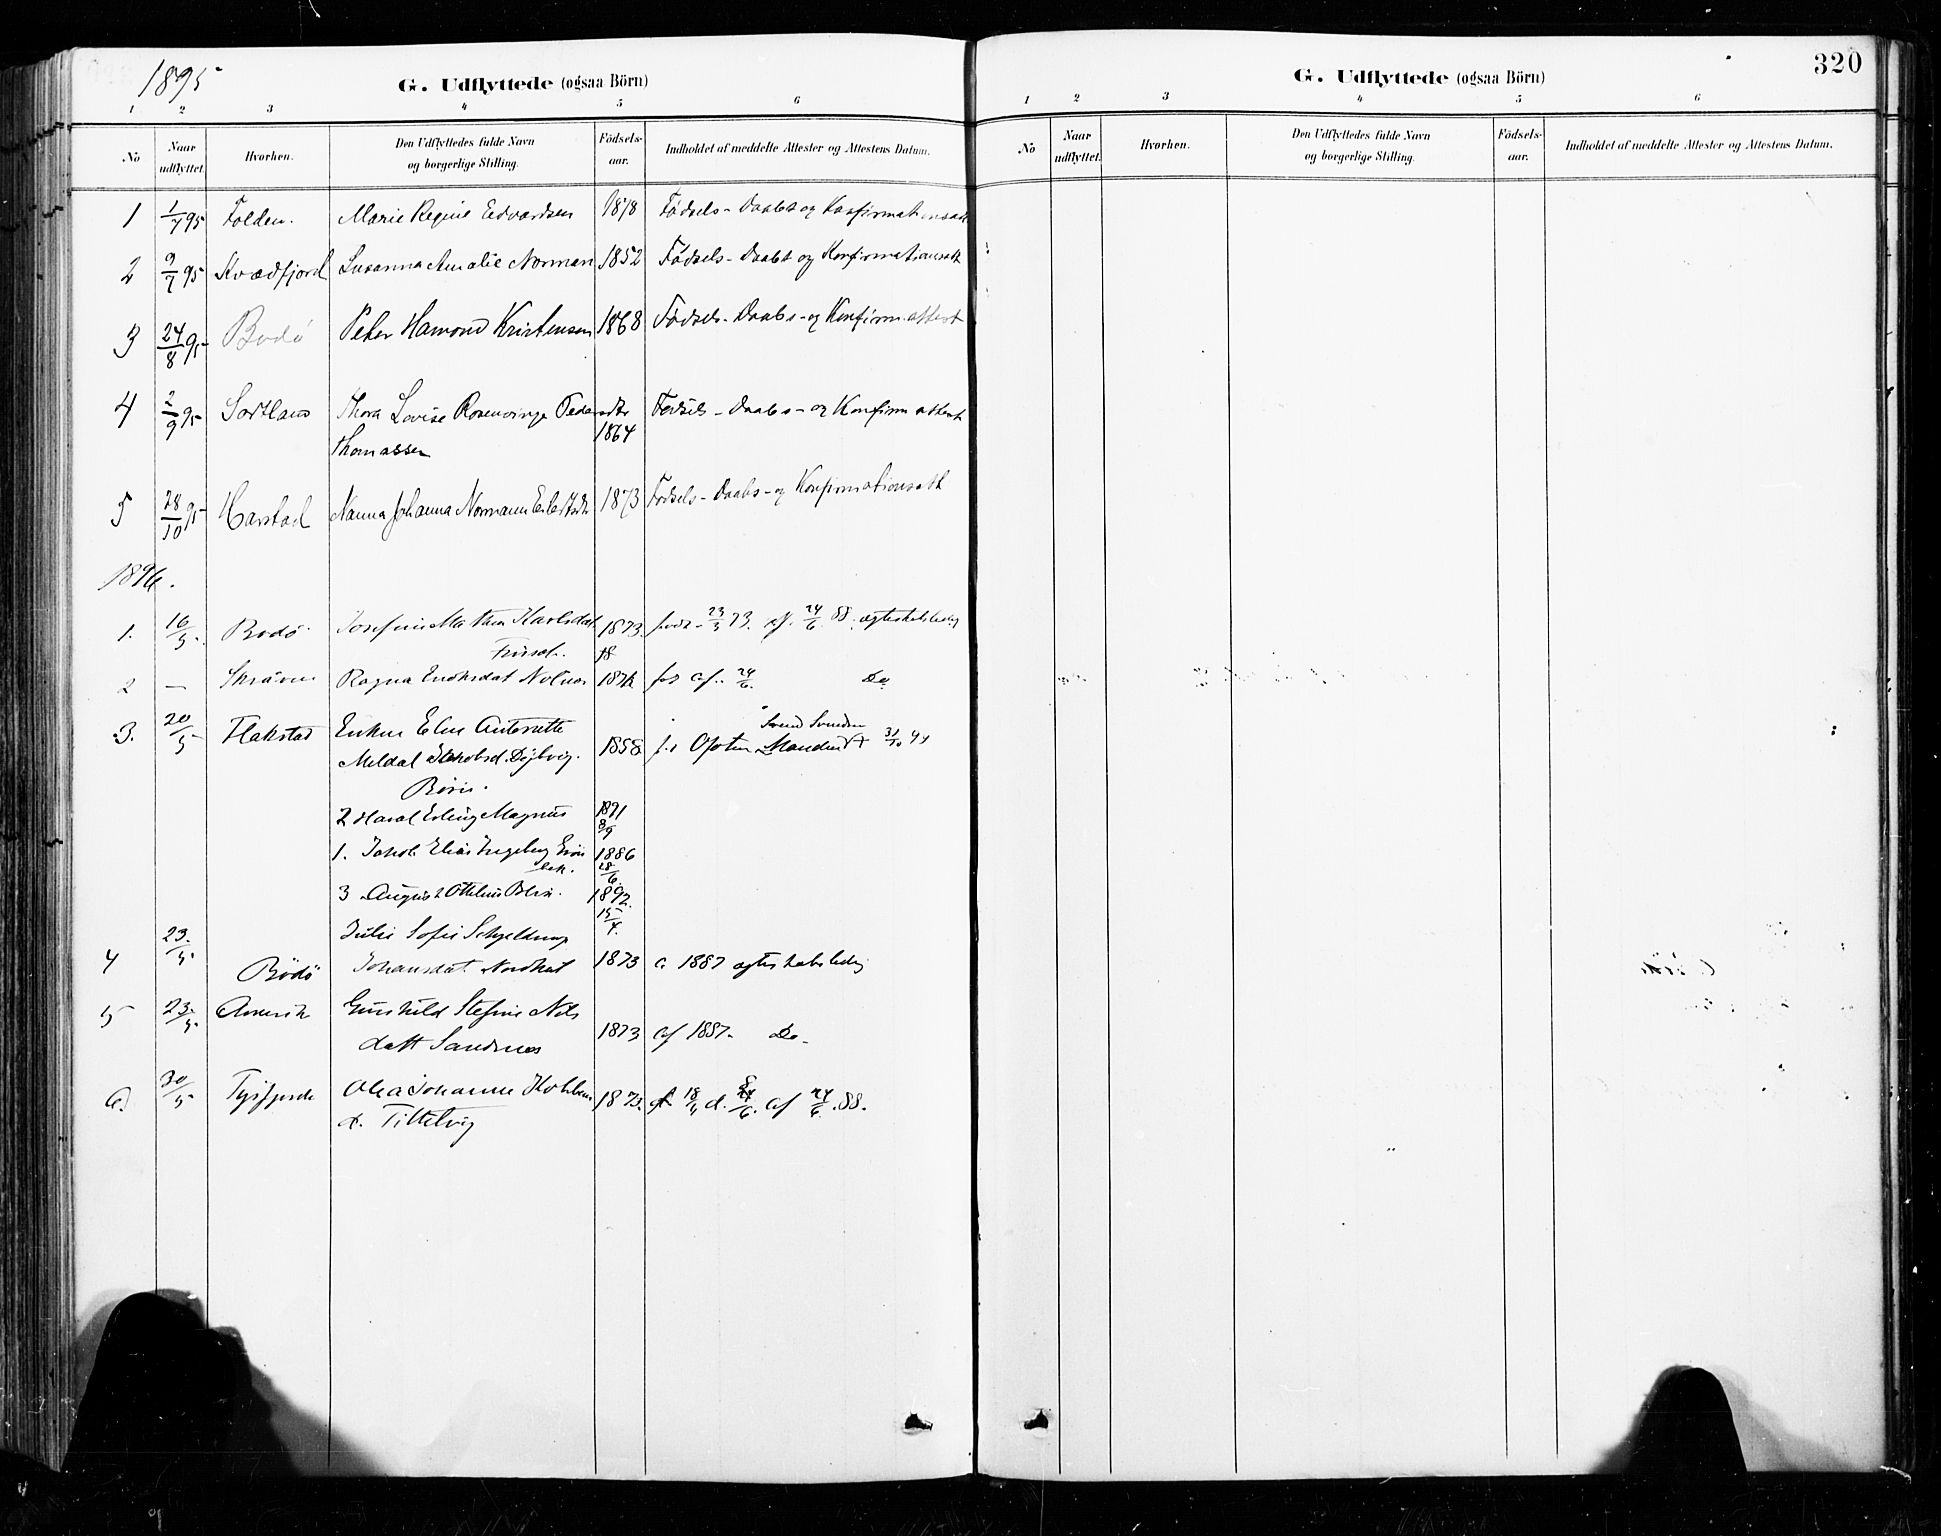 1895
G. Udflyttede (ogsaa Börn)
1 2 3 4 5 6
No
Naar udflyttet.
Hvorhen.
Den Udflyttedes fulde Navn og borgerlige Stilling.
Födsels-aar.
Indholdet af meddelte Attester og Attestens Datum.
1 1/7 95 Folden. Marie Regine Edvardsen 1878 Fødsels- Daabs og Konfirmationsatt
2 9/7 95 Kvædfjord Susanna Amalie Norman 1852 Fødsels- Daabs og Konfirmationsatt
3 24/8 95 Bodø Peter Hamond Kristensen 1868 Fødsels- Daabs- og Konfirm. attest
4 2/9 95 Sortland Thora Lovise Rosenvinge Pedersdtr 1864 Fødsels- Daabs- og Konfirm attest
Thomassen
5 28/10 95 Harstad Nanna Johanna Normann 1873 Fødsels- Daabs- og Konfirmationsatt
1896.
1. 16/5. Bodø Josefine Karlsdat. 1873. 23/3 73. cf. 24/6. 88. ægteskabsledig
2 — Ragna 187 cf. 24/6. Do
3. 20/5 Flakstad Enken Eline Antonette
Meldal 1858. Manden † 31/10 94
Svend Svendsen
Børn.
2 Haral Erling Magnus 1891 8/9
1. Jakob Elias Ingeberg 1886 28/6.
3 August 1892. 15/4.
4 23/5. Bodø Julie Sofie Schjeldrup
Johansdat. 1873 c. 1887 ægteskabsledig
5 23/5 Amerik Gunhild Stefine Nils
datt Sandnes 1873 cf 1887. Do.
6. 30/5 Tysfjorde Olea Johanne
d. Tittelvig 1873. 18/4 d. 6. cf 24/6. 88.
320
G. Udflyttede (ogsaa Börn)
1 2 3 4 5 6
No
Naar udflyttet.
Hvorhen.
Den Udflyttedes fulde Navn og borgerlige Stilling.
Födsels-aar.
Indholdet af meddelte Attester og Attestens Datum.